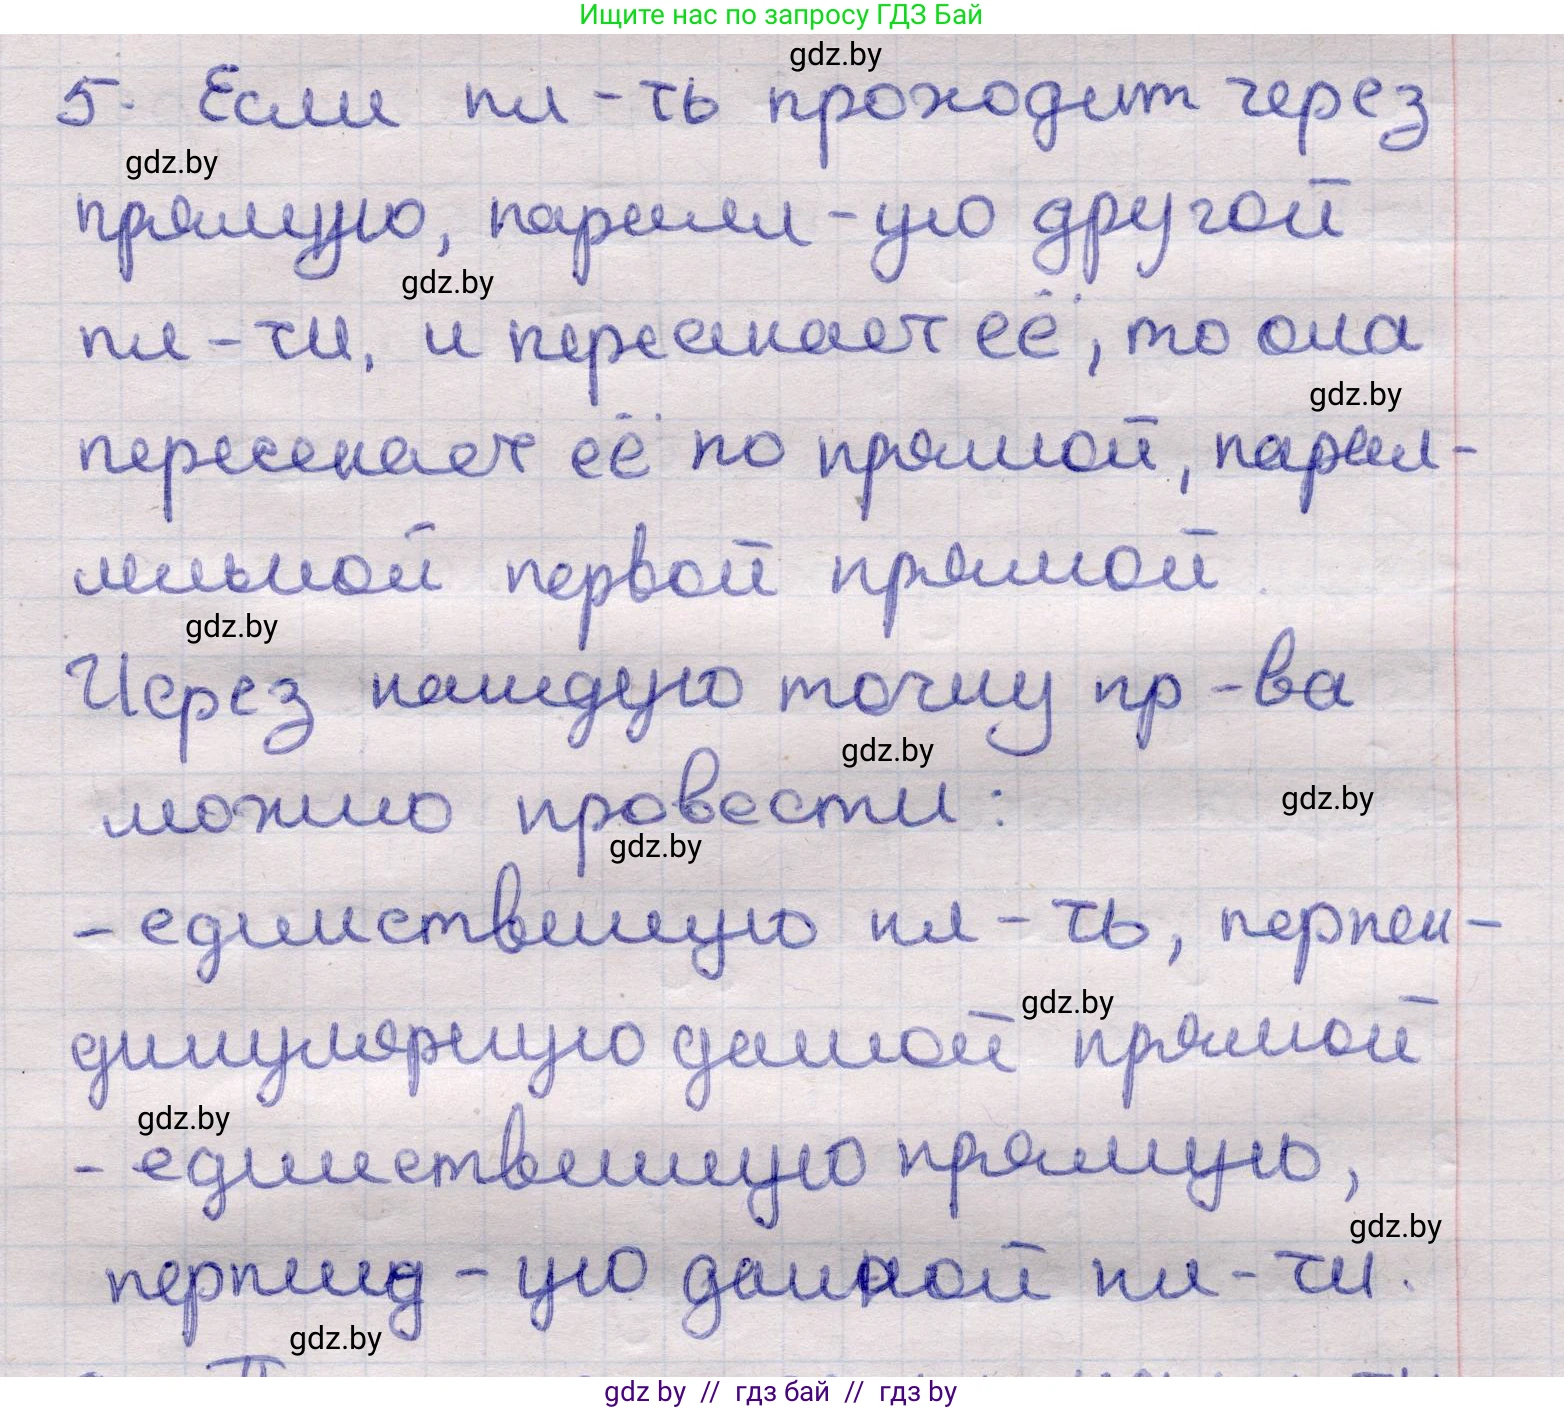 Ищите нас по запросу ГДЗ Бай
gdz.by
5. Если пл-ть проходит через
gdz.by
прямую, паралл-ую другой
gdz.by
пл-ти, и пересекает её, то она
gdz.by
пересекает её по прямой, парал-
лельной первой прямой.
gdz.by
Через каждую точку пр-ва
gdz.by
можно провести:
gdz.by
gdz.by
- единственную пл-ть, перпен-
gdz.by
дикулярную данной прямой
gdz.by
- единственную прямую,
gdz.by
перпенд-ую данной пл-ти.
gdz.by
gdz by // гдз бай // гдз by